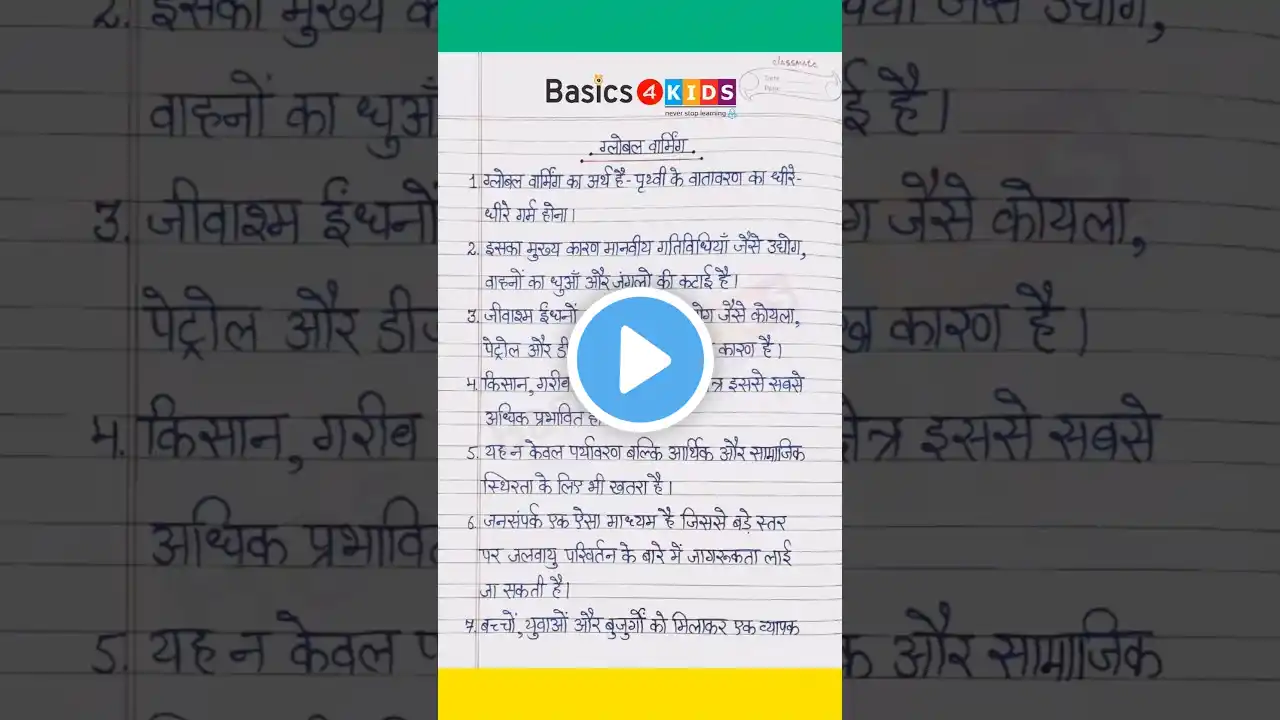 classmate
Date
Page
Basics 4 KIDS
never stop learning
ग्लोबल वार्मिंग
1. ग्लोबल वार्मिंग का अर्थ है- पृथ्वी के वातावरण का धीरे-
धीरे गर्म होना।
2. इसका मुख्य कारण मानवीय गतिविधियाँ जैसे उद्योग,
वाहनों का धुआँ और जंगलो की कटाई है।
3. जीवाश्म ईंधनों जैसे कोयला,
पेट्रोल और कारण है।
4. किसान, गरीब इससे सबसे
अधिक प्रभावित
5. यह न केवल पर्यावरण बल्कि आर्थिक और सामाजिक
स्थिरता के लिए भी खतरा है।
6. जनसंपर्क एक ऐसा माध्यम है जिससे बड़े स्तर
पर जलवायु परिवर्तन के बारे में जागरूकता लाई
जा सकती है।
7. बच्चों, युवाओं और बुजुर्गों को मिलाकर एक व्यापक